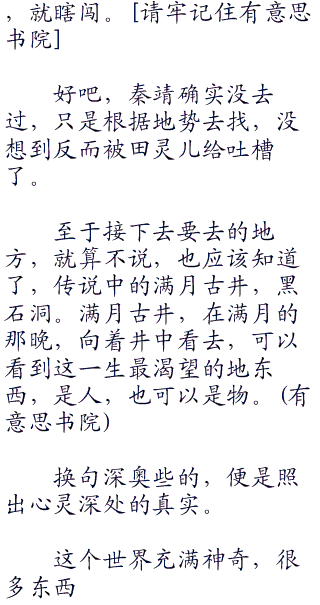 ，就瞎闯。 [请牢记住有意思
书院]
好吧，秦靖确实没去
过，只是根据地势去找，没
想到反而被田灵儿给吐槽
了。
至于接下去要去的地
方，就算不说，也应该知道
了，传说中的满月古井，黑
石洞。满月古井，在满月的
那晚，向着井中看去，可以
看到这一生最渴望的地东
西，是人，也可以是物。 (有
意思书院)
换句深奥些的，便是照
出心灵深处的真实。
这个世界充满神奇，很
多东西